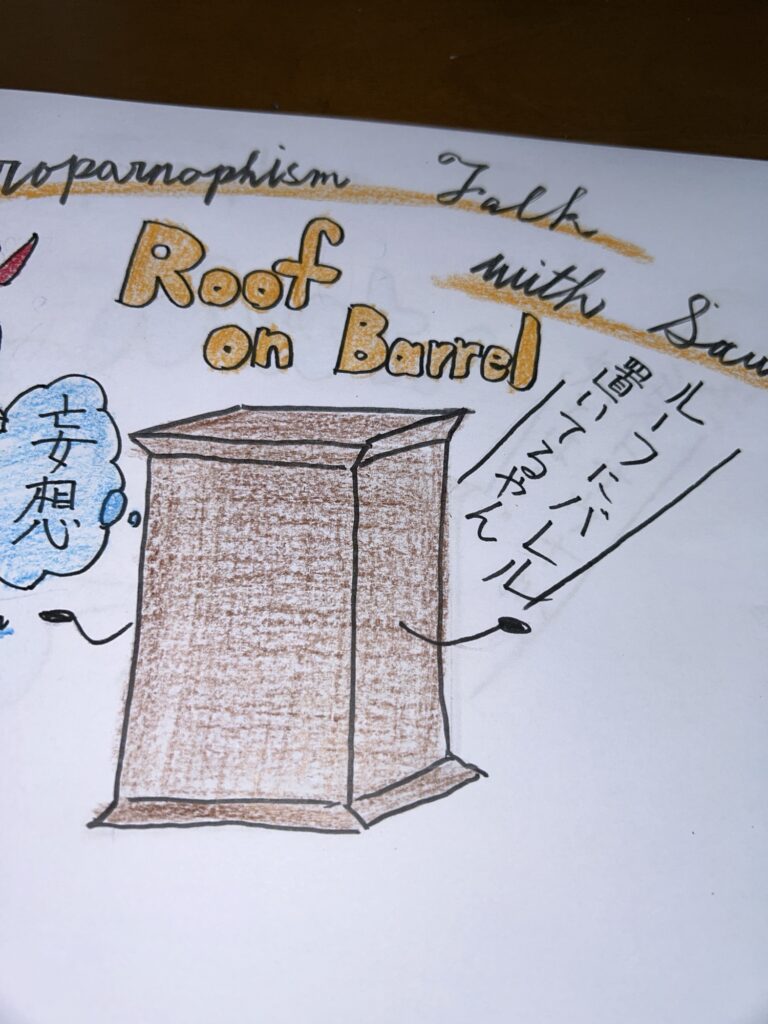 roparnophism Talk
with Sau
Roof
on Barrel
妄想
ルーフにバレル
置いてるやん